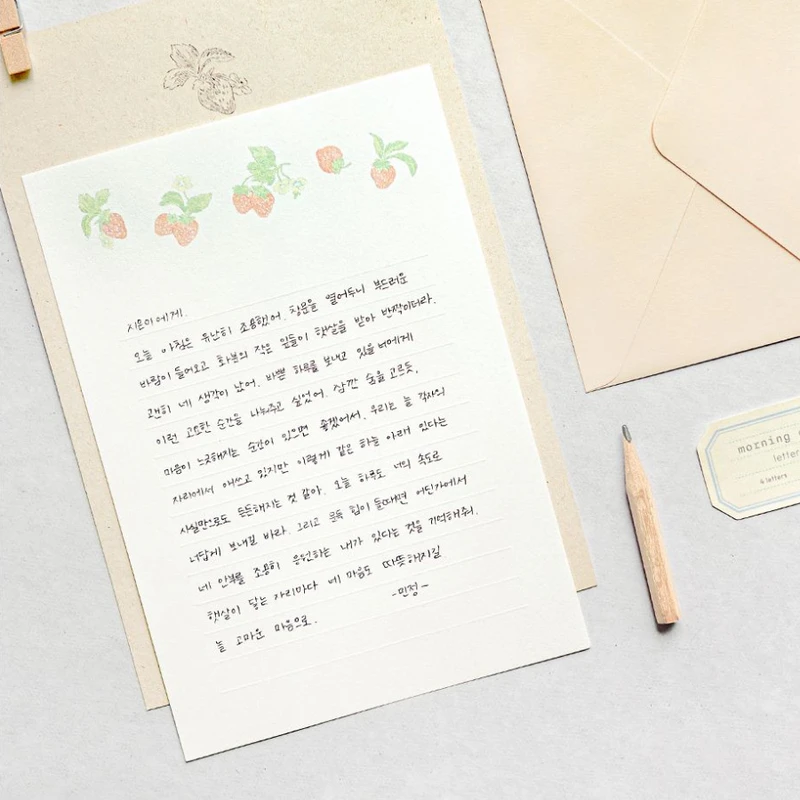 시온이에게.
오늘 아침은 유난히 조용했어. 창문을 열어두니 부드러운
바람이 들어오고 화분의 작은 잎들이 햇살을 받아 반짝이더라.
괜히 네 생각이 났어. 바쁜 하루를 보내고 있을 너에게
이런 고요한 순간을 나눠주고 싶었어. 잠깐 숨을 고르듯,
마음이 느긋해지는 순간이 있으면 좋겠어서. 우리는 늘 각자의
자리에서 애쓰고 있지만 이렇게 같은 하늘 아래 있다는
사실만으로도 든든해지는 것 같아. 오늘 하루도 너의 속도로
너답게 보내길 바라. 그리고 문득 힘이 들때면 어딘가에서
네 안부를 조용히 응원하는 내가 있다는 것을 기억해줘.
햇살이 닿는 자리마다 네 마음도 따뜻해지길
늘 고마운 마음으로.
-민정-
morning
letter
4 letters